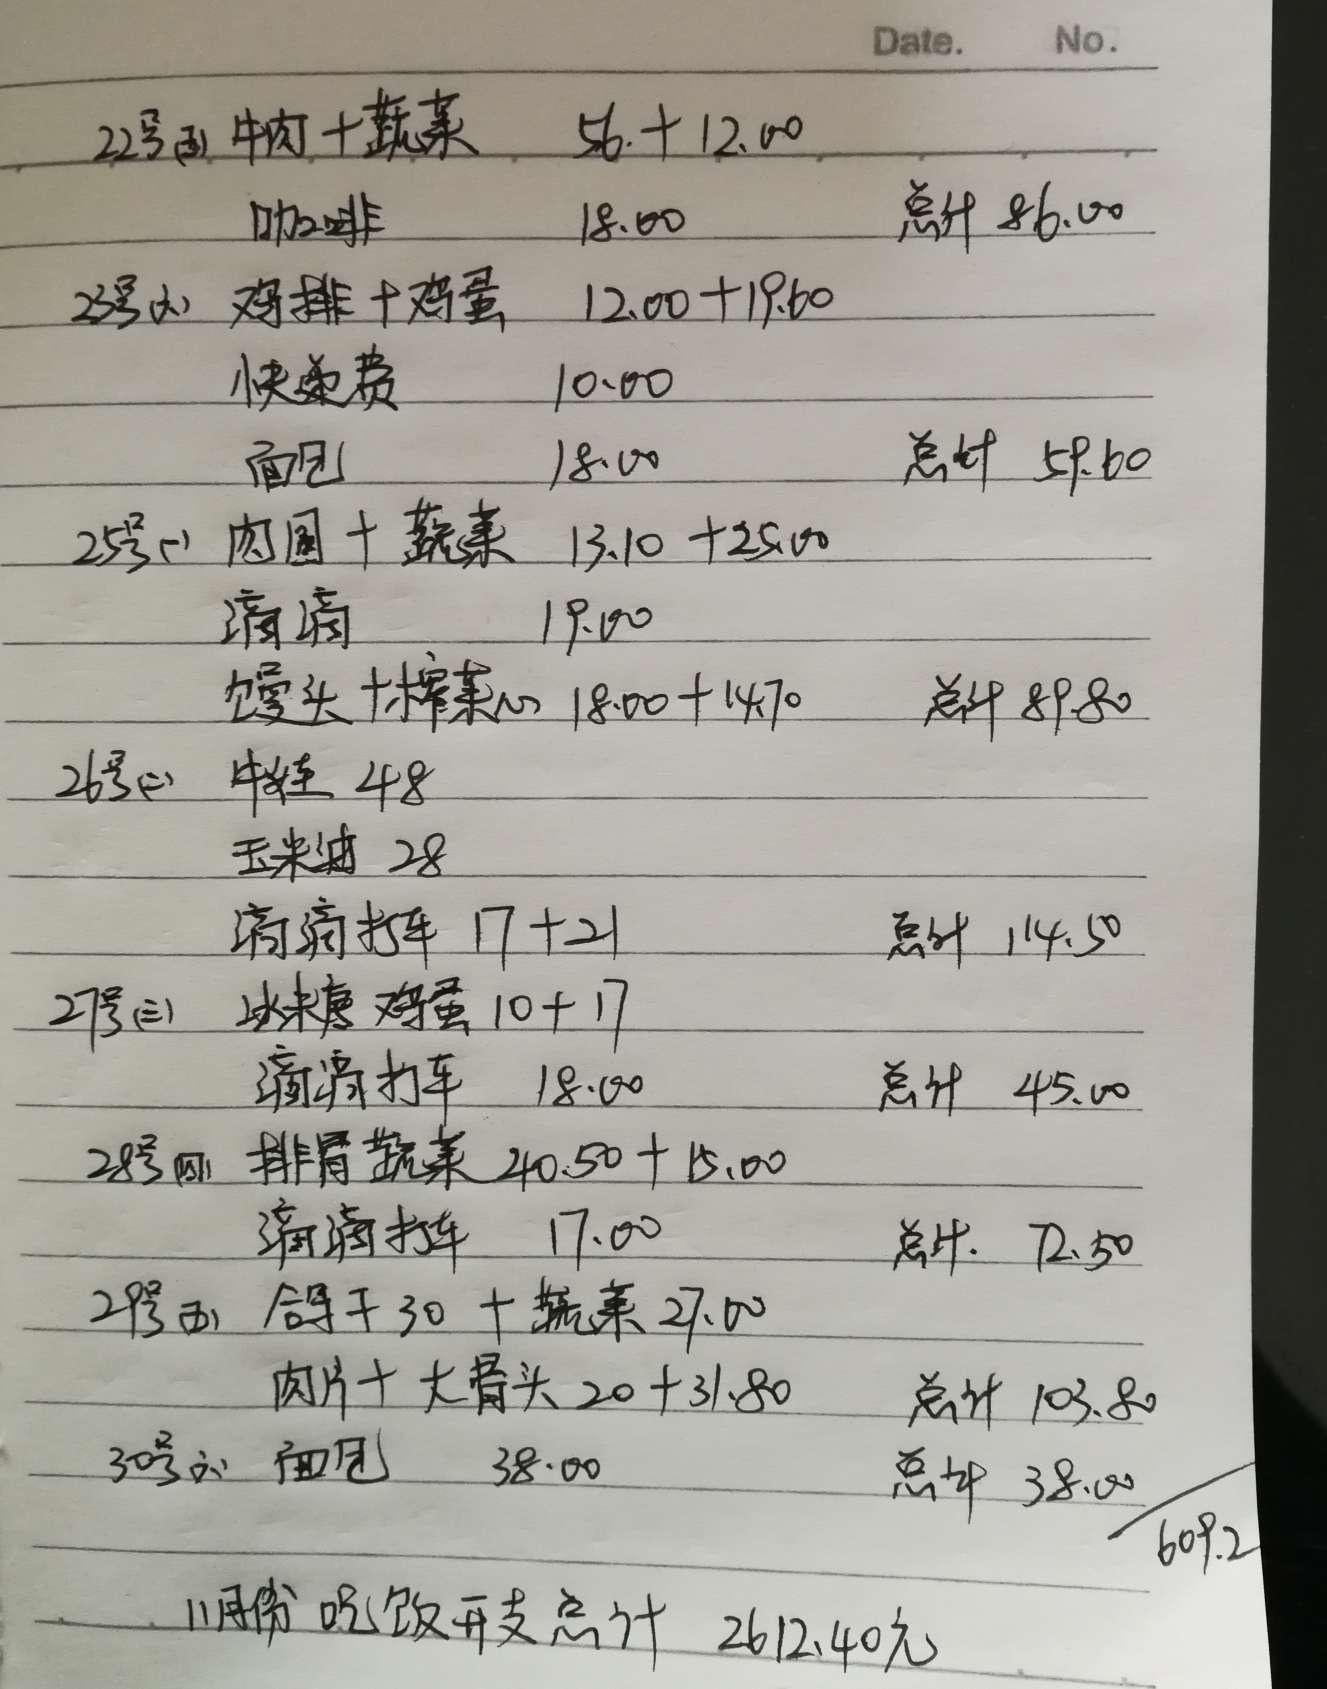 Date. No.
22号(五) 牛肉+蔬菜 56.+12.00
咖啡 18.00 总计 86.00
23号(六) 鸡排+鸡蛋 12.00+19.60
快递费 10.00
面包 18.00 总计 59.60
25号(一) 肉圆+蔬菜 13.10+25.00
滴滴 19.00
馒头+榨菜心 18.00+14.70 总计 89.80
26号(二) 牛蛙 48
玉米油 28
滴滴打车 17+21 总计 114.50
27号(三) 冰糖 鸡蛋 10+17
滴滴打车 18.00 总计 45.00
28号(四) 排骨 蔬菜 40.50+15.00
滴滴打车 17.00 总计. 72.50
29号(五) 鸽子30+蔬菜27.00
肉片+大骨头 20+31.80 总计 103.80
30号(六) 面包 38.00 总计 38.00
609.2
11月份吃饭开支总计 2612.40元